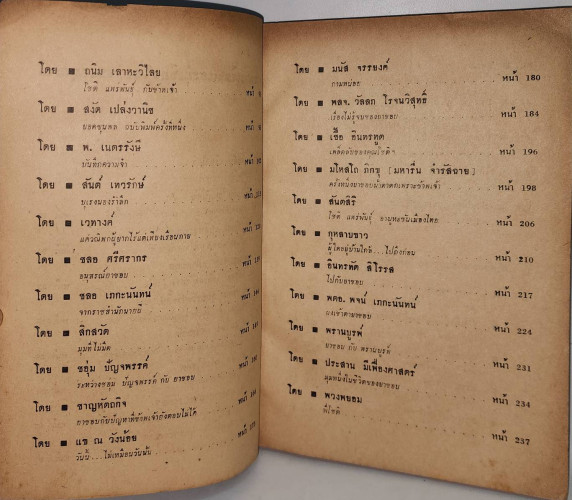 โดย ■ ถนิม เลาหะวิไลย
โชติ แพร่พันธุ์ กับข้าพเจ้า
หน้า
โดย ■ สงัด เปล่งวานิช
ยอดขุนพล ฉบับพิมพ์ครั้งที่หนึ่ง
หน้า
โดย ■ พ. เนตรรังษี
บันทึกความจำ
หน้า
โดย ■ สันต์ เทวรักษ์
หน้า
โดย ■ เวทางค์
หน้า
โดย ■ ชลอ ศรีศรากร
อนุสรณ์ยาขอบ
หน้า
โดย ■ ชลอ เภกะนันทน์
จากราชสำนักมายา
หน้า
โดย ■ สิกสวัต
มุมที่ไม่มืด
หน้า
โดย ■ ชอุ่ม ปัญจพรรค์
ระหว่างชอุ่ม ปัญจพรรค์ กับ ยาขอบ
หน้า
โดย ■ ชาญหัตถกิจ
ยาขอบกับปัญหาที่ข้าพเจ้ายังตอบไม่ได้
หน้า
โดย ■ แข ณ วังน้อย
วันนี้...ไม่เหมือนวันนั้น
หน้า
โดย ■ มนัส จรรยงค์
กามหน่อย
หน้า 180
โดย ■ พลจ. วัลลภ โรจนวิสุทธิ์
เรื่องไม่รู้จบของยาขอบ
หน้า 184
โดย ■ เชื้อ อินทรทูต
หน้า 196
โดย ■ มโหสโถ ภิกขุ [มหารื่น จำรัสฉาย]
หน้า 198
โดย ■ สันตสิริ
โชติ แพร่พันธุ์ อานุทะซินเมืองไทย
หน้า 206
โดย ■ กุหลาบขาว
ผู้ใดอยู่บ้านใกล้...ไปถึงก่อน
หน้า 210
โดย ■ อินทรทัต สิโรรส
ไปกับยาขอบ
หน้า 217
โดย ■ พตอ. พจน์ เภกะนันทน์
ผงเข้าตายาขอบ
หน้า 224
โดย ■ พรานบูรพ์
ยาขอบ กับ พรานบูรพ์
หน้า 231
โดย ■ ประสาน มีเฟื่องศาสตร์
มุมหนึ่งในชีวิตของยาขอบ
หน้า 234
โดย ■ พวงพยอม
พี่โชติ
หน้า 237